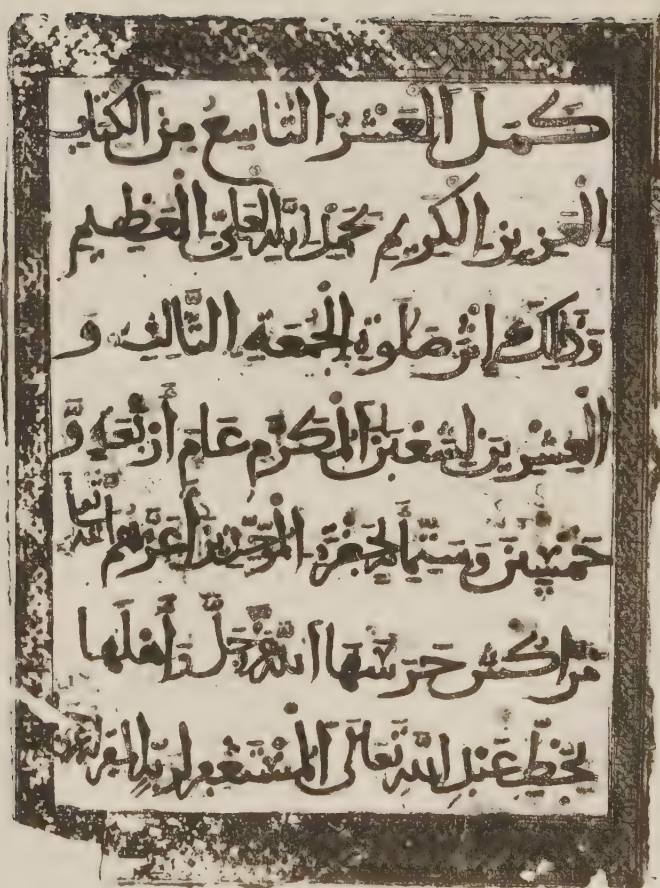 كمل العشر التاسع من الكتاب
العزيز الكريم بحمد الله العلي العظيم
وذلك إثر صلوة الجمعة الثالث و
العشرين لشعبن المكرم عام أربعة و
خمسين وستمائة بحضرة الموحدين أعزهم الله تعالى
مراكش حرسها الله عز وجل وأهلها
بخط عبد الله تعالى المستغفر لربه